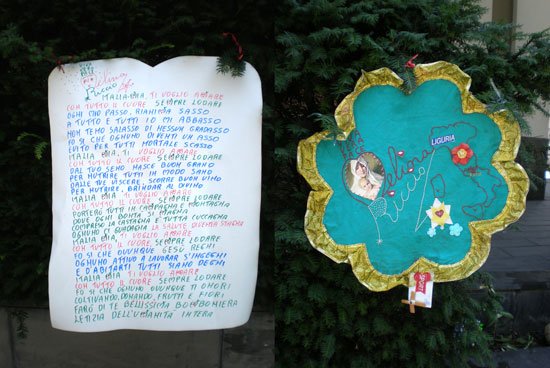 ITALIA MIA, TI VOGLIO AMARE
CON TUTTO IL CUORE SEMPRE LODARE
OGNI MIO PASSO, RIANIMA SASSO
A TUTTO E TUTTI IO MI ABBASSO
NON TEMO SALASSO DI NESSUN GRADASSO
FO SI CHE OGNUNO DIVENTI UN ASSO
EVITO PER TUTTI MORTALE SCASSO
ITALIA MIA, TI VOGLIO AMARE
CON TUTTO IL CUORE SEMPRE LODARE
DAL TUO SENO, NASCE BUON GRANO
PER NUTRIRE TUTTI IN MODO SANO
DALLE TUE VISCERE, SGORGA BUON VINO
PER NUTRIRE, BRINDAR AL DIVINO
ITALIA MIA, TI VOGLIO AMARE
CON TUTTO IL CUORE SEMPRE LODARE
PORTERÒ TUTTI IN CAMPAGNA E MONTAGNA
DOVE OGNI BONTÀ SI MAGNA
COMPRESO LA CASTAGNA E TUTTA CUCCAGNA
OGNUNO CI GUADAGNA LA SALUTE
ITALIA MIA, TI VOGLIO AMARE
CON TUTTO IL CUORE SEMPRE LODARE
FO SI CHE OVUNQUE GESÙ REGNI
OGNUNO ATTIVO A LAVORAR S'INGEGNI
E AD AIUTARTI TUTTI SIANO DEGNI
ITALIA MIA TI VOGLIO AMARE
CON TUTTO IL CUORE SEMPRE LODARE
FO SI CHE OGNUNO OVUNQUE TI ONORI
COLTIVANDO, DONANDO, FRUTTI E FIORI
FARÒ DI TE BELLISSIMA BOMBONIERA
LETIZIA DELL'UMANITÀ INTERA
LIGURIA
Celina
Ricco